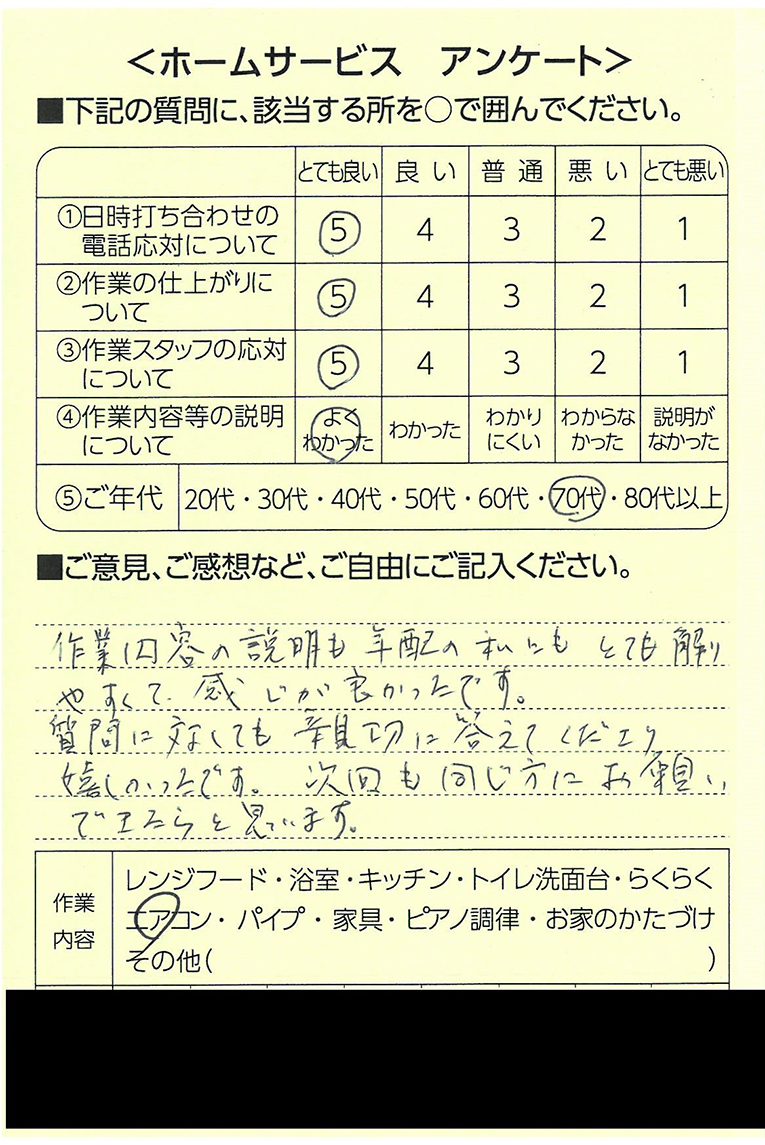 ＜ホームサービス アンケート＞
■下記の質問に、該当する所を○で囲んでください。
とても良い 良い 普通 悪い とても悪い
①日時打ち合わせの
電話応対について 5 4 3 2 1
②作業の仕上がりに
ついて 5 4 3 2 1
③作業スタッフの応対
について 5 4 3 2 1
④作業内容等の説明 よく わかった わかり わからな 説明が
について わかった にくい かった なかった
⑤ご年代 20代・30代・40代・50代・60代・70代・80代以上
■ご意見、ご感想など、ご自由にご記入ください。
作業内容の説明も年配の私にもとても解り
やすくて、感じが良かったです。
質問に対しても親切に答えてくださり
嬉しかったです。次回も同じ方にお願い
できたらと思います。
作業
内容
レンジフード・浴室・キッチン・トイレ洗面台・らくらく
エアコン・パイプ・家具・ピアノ調律・お家のかたづけ
その他( )